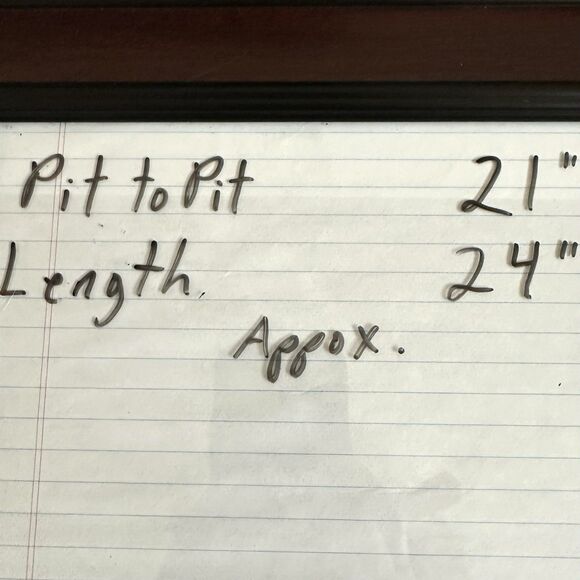 Pit to Pit 21"
Length. 24"
Appox.